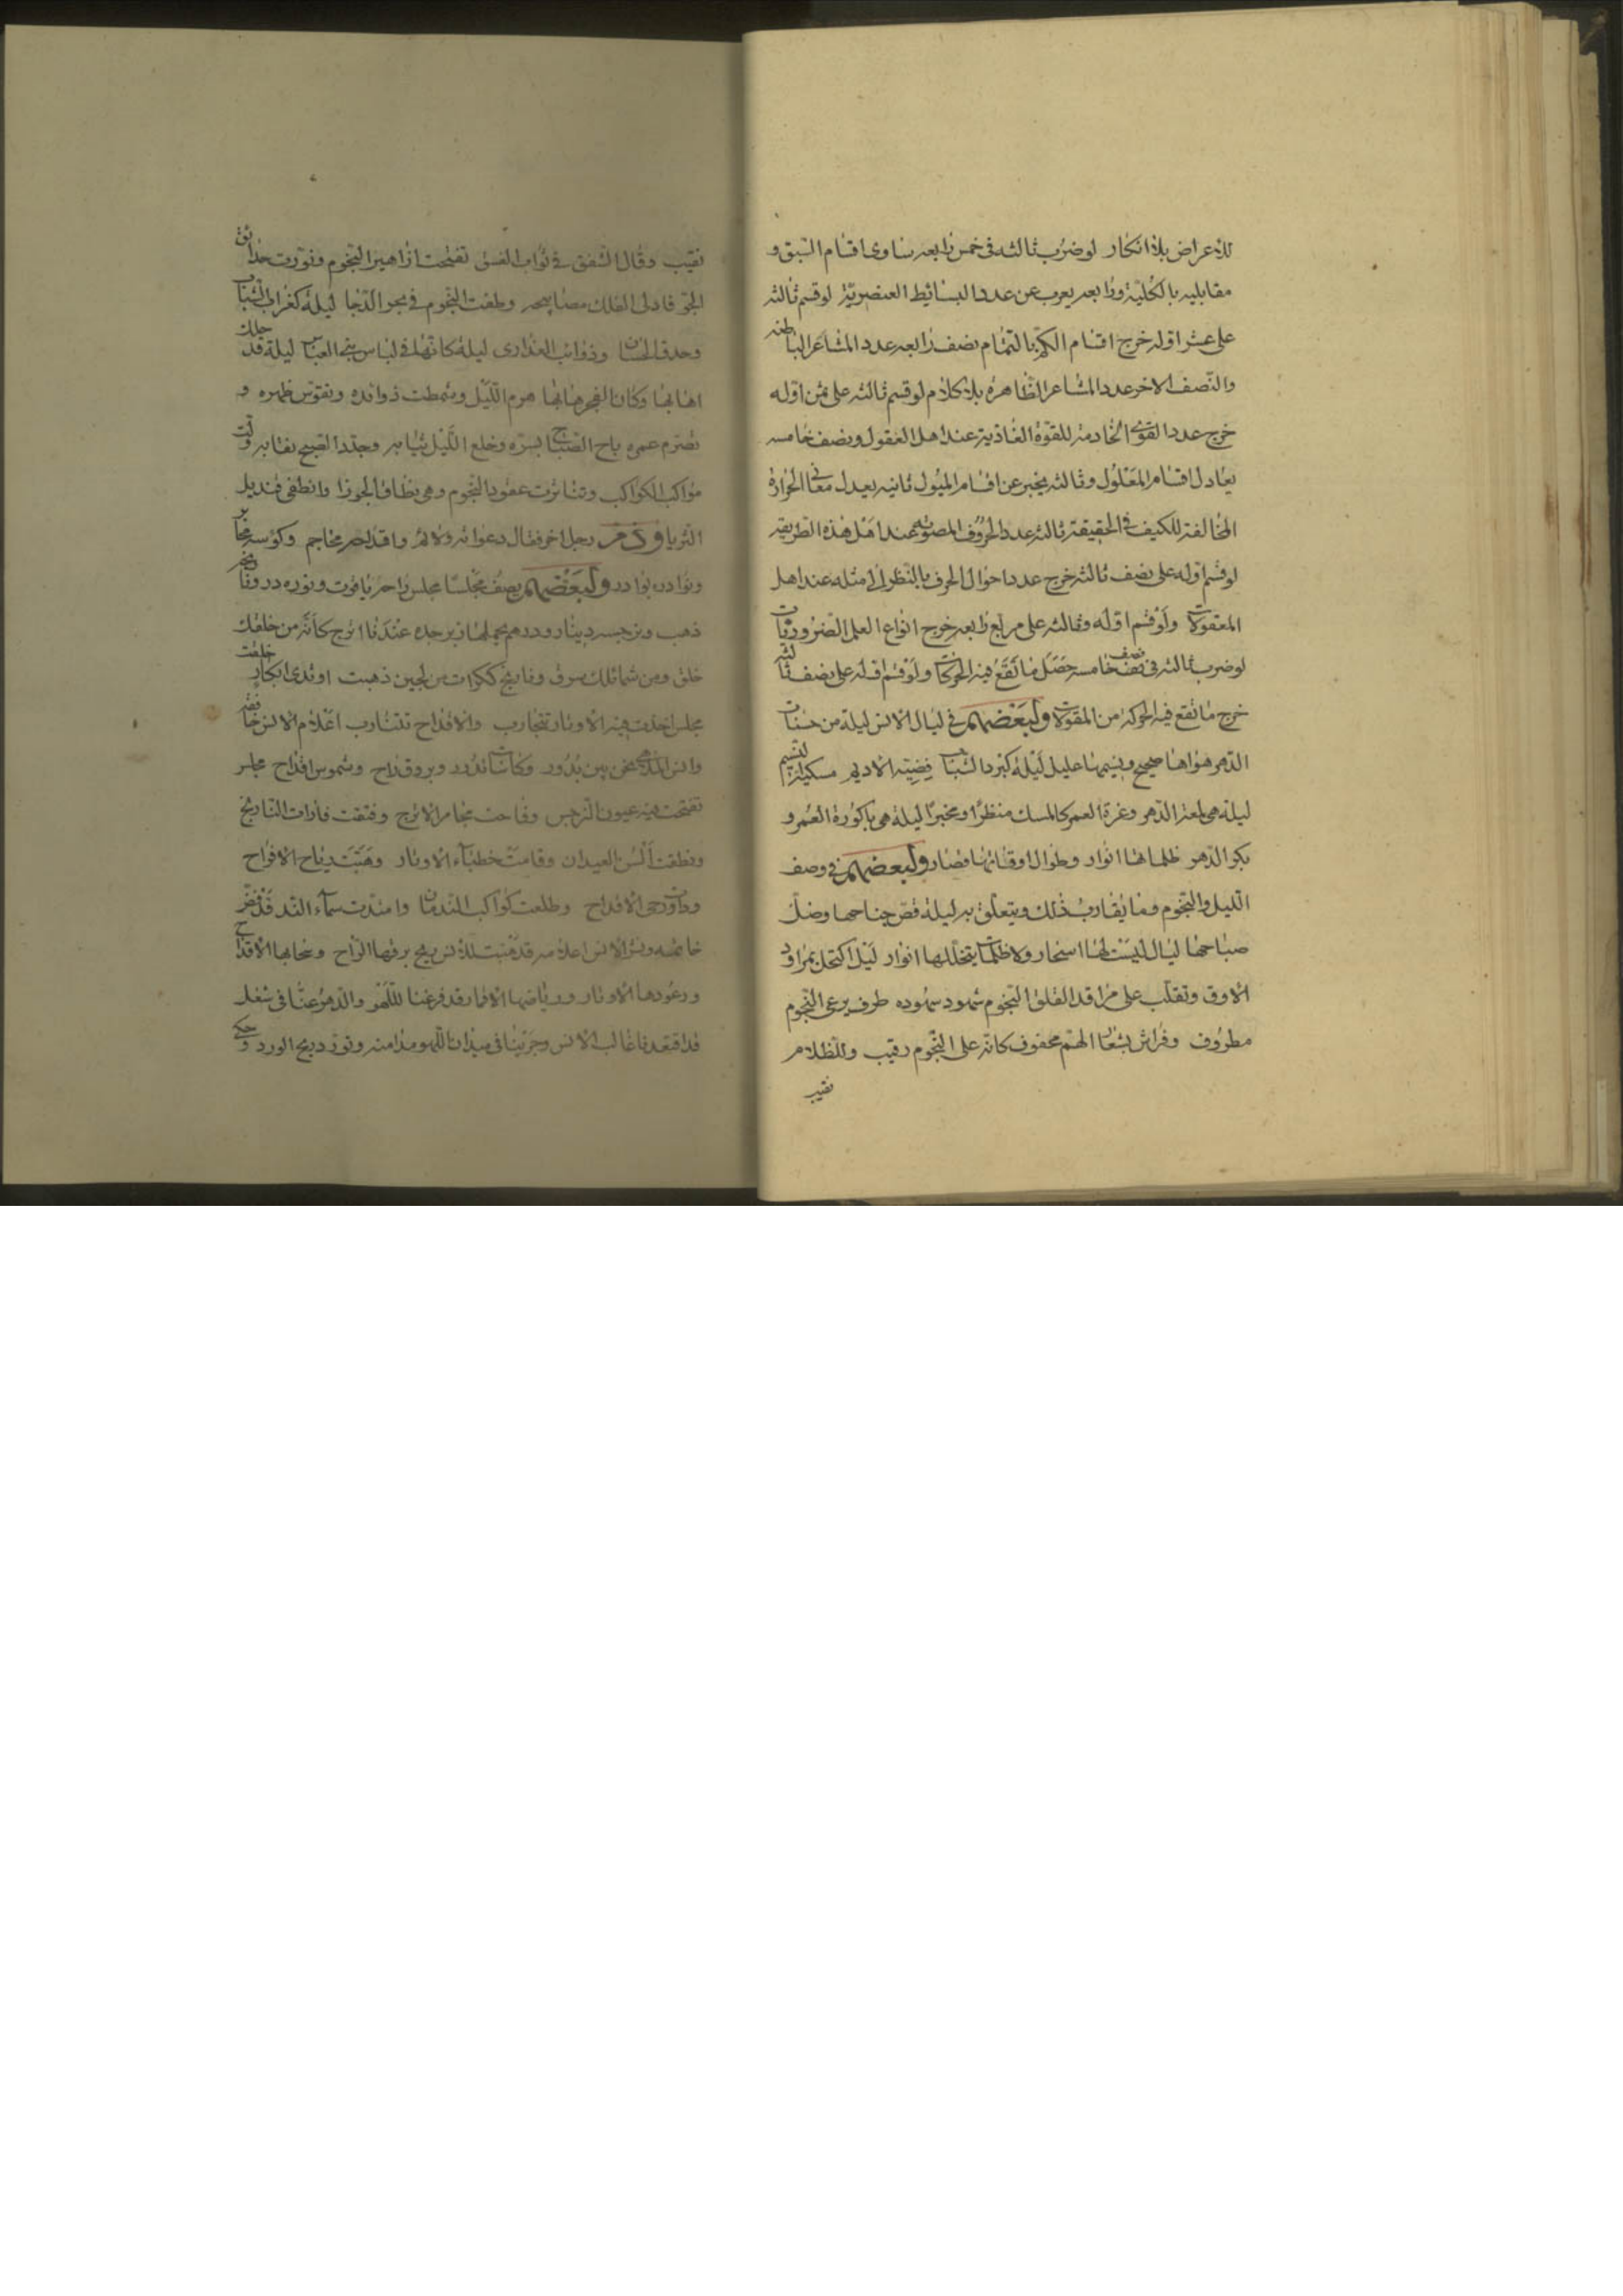 للاعراض بلا انكار لو ضرب ثالثه فى خمس رابعه ساوى اقسام السبق و
مقابليه بالكلية ورابعه يعرب عن عدد البسائط العنصرية لو قسم ثالثه
على عشر اوله خرج اقسام الكم بالتمام نصف رابعه عدد المشاعر الباطنه
والنصف الاخر عدد المشاعر الظاهره بلا كلام لو قسم ثالثه على ثمن اوله
خرج عدد القوى الخادمة للقوة الغاذية عند اهل العقول ونصف خامسه
يعادل اقسام المعلول وثالثه يخبر عن اقسام الميول ثانيه يعدل معانى الحرارة
المخالفة للكيف فى الحقيقة ثالثه عدد الحروف المصوته عند اهل هذه الطريقه
لو قسم اوله على نصف ثالثه خرج عدد احوال الحرف بالنظر الى مثله عند اهل
المعقولات ولو قسم اوله وثالثه على مربع رابعه خرج انواع العلل الضروريات
لو ضرب ثالثه فى نصف خامسه حصل ما تقع فيه الحركات ولو قسم اوله على نصف ثالثه
خرج ما تقع فيه الحركة من المقولات ولبعضهم فى ليال الانس ليلة من حسنات
الدهر هواها صحيح ونسيمها عليل ليلة كبرد الشباب فضية الاديم مسكية النسيم
ليلة هى لمعة الدهر وغرة العمر كالمسك منظرا ومخبرا ليلة هى باكورة العمر و
بكر الدهر ظلماتها انوار وطوال اوقاتها قصار ولبعضهم فى وصف
الليل والنجوم وما يقارب ذلك ويتعلق به ليلة قص جناحها وضل
صباحها ليال ليست لها اسحار ولا ظلمات يتخللها انوار ليل اكتحل بمراود
الارق وتقلب على مراقد القلق النجوم شهود سهوده طرف يرعى النجوم
مطروف وفراش بشعار الهم محفوف كانه على النجوم رقيب وللظلام
نقيب
نقيب وقال الشفق فى ثواب الغسق تفتحت ازاهير النجوم ونورت حدائق
الجو فادلى الفلك مصابيحه وطفت النجوم فى بحر الدجا ليلة كغراب الشباب
وحدق الحسان وذوائب العذارى ليلة كانها فى لباس بنى العباس ليلة قد حلك
اهابها وكان الفجر هابها هرم الليل وشمطت ذوائبه وتقوس ظهره و
تصرم عمره باح الصباح بسره وخلع الليل ثيابه وحدر الصبح نقابه ولت
مواكب الكواكب وتناثرت عقود النجوم وهى نطاق الجوزا وانطفى قنديل
الثريا وذم رجل اخر فقال دعواته ولائم واقداحه محاجم وكؤسه محابر
ونوادره بوادر ولبعضهم يصف مجلسا مجلس راحه ياقوت ونوره در ونارنجه
ذهب ونرجسه دينار ودرهم يحملهما زبرجده عندنا اترج كانه من خلقك
خلق ومن شمائلك سرق ونارنج ككرات من لجين ذهبت او ثدى ابكار خلقت
مجلس اخذت فيه الاوتار تتجاوب والاقداح تتناوب اعلام الانس خافقه
والسن الملاهى نحن بين بدور وكاسات تدور وبروق راح وشموس اقداح مجلس
تفتحت فيه عيون النرجس وفاحت مجامر الاترج وفتقت فارات النارنج
ونطقت السن العيدان وقامت خطباء الاوتار وهبت رياح الاقداح
وطلعت كواكب الندمان وامتدت سماء الند قد فض
خاتمه ونشر الانس اعلامه قد هبت للانس ريح برقها الراح وسحابها الاقداح
ورعودها الاوتار ورياضها الاقمار قد فرغنا للهو والدهر عنا فى شغل
قد اقتعدنا غالب الانس وجرينا فى ميدان اللهو مدامنه وتورد ريح الورد وحكى